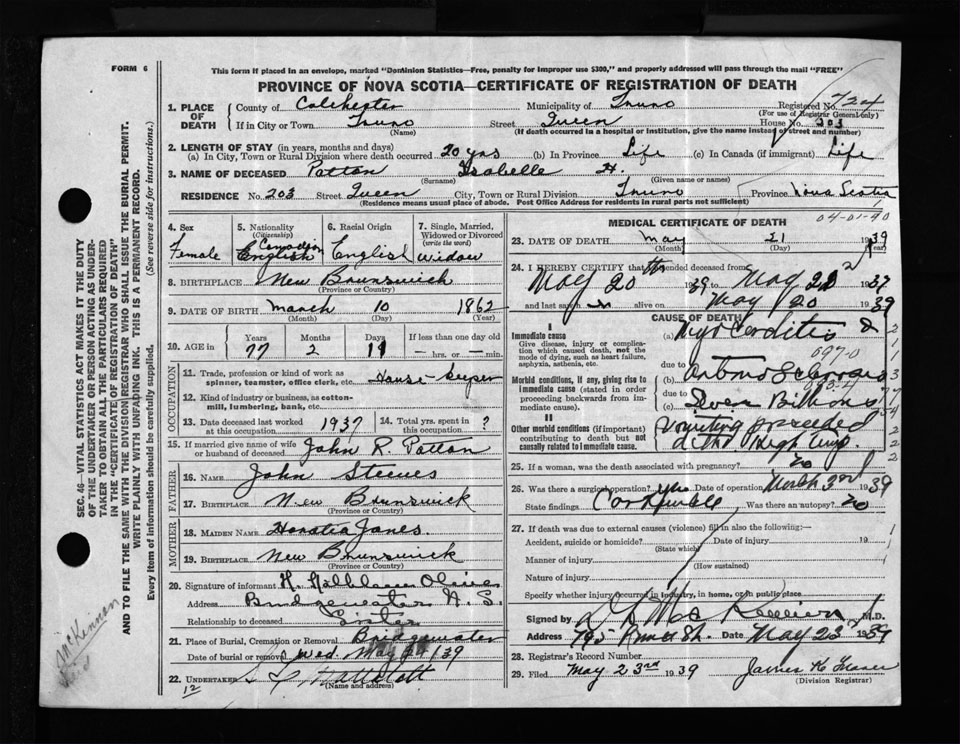 FORM 6
This form if placed in an envelope, marked "Dominion Statistics—Free, penalty for improper use $300," and properly addressed will pass through the mail "FREE"
PROVINCE OF NOVA SCOTIA—CERTIFICATE OF REGISTRATION OF DEATH
1. PLACE OF DEATH County of Colchester Municipality of Truro Registered No. 724
(For use of Registrar General only)
If in City or Town Truro Street Queen House No. 203
(Name) (If death occurred in a hospital or institution, give the name instead of street and number)
2. LENGTH OF STAY (in years, months and days)
(a) In City, Town or Rural Division where death occurred 20 yrs (b) In Province Life (c) In Canada (if immigrant) Life
3. NAME OF DECEASED Patton Isabelle H.
(Surname) (Given name or names)
RESIDENCE No. 203 Street Queen City, Town or Rural Division Truro Province Nova Scotia
(Residence means usual place of abode. Post Office Address for residents in rural parts not sufficient)
4. Sex Female
5. Nationality (Citizenship) Canadian English
6. Racial Origin English
7. Single, Married, Widowed or Divorced (write the word) Widow
8. BIRTHPLACE New Brunswick
(Province or Country)
9. DATE OF BIRTH March 10 1862
(Month) (Day) (Year)
10. AGE in Years 77 Months 2 Days 11 If less than one day old — hrs. or — min.
OCCUPATION
11. Trade, profession or kind of work as spinner, teamster, office clerk, etc. House-keeper
12. Kind of industry or business, as cotton-mill, lumbering, bank, etc.
13. Date deceased last worked at this occupation 1937 14. Total yrs. spent in this occupation ?
15. If married give name of wife or husband of deceased John R. Patton
FATHER
16. NAME John Steeves
17. BIRTHPLACE New Brunswick
(Province or Country)
MOTHER
18. MAIDEN NAME Horatia Jones
19. BIRTHPLACE New Brunswick
(Province or Country)
20. Signature of informant
Address Bridgewater N.S.
Relationship to deceased Sister
21. Place of Burial, Cremation or Removal Bridgewater
Date of burial or removal Wed. May 24/39
22. UNDERTAKER
(Name and address)
12
MEDICAL CERTIFICATE OF DEATH
04-01-90
23. DATE OF DEATH May 21 1939
(Month) (Day) (Year)
24. I HEREBY CERTIFY that I attended deceased from
May 20th 1939 to May 21 1937
and last saw h alive on May 20 1939
CAUSE OF DEATH
I
Immediate cause
Give disease, injury or complication which caused death, not the mode of dying, such as heart failure, asphyxia, asthenia, etc.
(a) Myocarditis &
due to
Morbid conditions, if any, giving rise to immediate cause (stated in order proceeding backwards from immediate cause).
(b)
due to
(c)
II
Other morbid conditions (if important) contributing to death but not causally related to immediate cause.
Vomiting preceded death High temp.
25. If a woman, was the death associated with pregnancy? No
26. Was there a surgical operation? Date of operation March 3rd 1939
State findings Was there an autopsy? No
27. If death was due to external causes (violence) fill in also the following:—
Accident, suicide or homicide? Date of injury 19
(State which)
Manner of injury
(How sustained)
Nature of injury
Specify whether injury occurred in industry, in home, or in public place
Signed by M.D.
Address 795 Prince St. Date May 23 1939
28. Registrar's Record Number
29. Filed May 23rd 1939 James K Fraser
(Division Registrar)
SEC. 46—VITAL STATISTICS ACT MAKES IT THE DUTY OF THE UNDERTAKER OR PERSON ACTING AS UNDERTAKER TO OBTAIN ALL THE PARTICULARS REQUIRED IN THE "CERTIFICATE OF REGISTRATION OF DEATH" AND TO FILE THE SAME WITH THE DIVISION REGISTRAR WHO SHALL ISSUE THE BURIAL PERMIT.
WRITE PLAINLY WITH UNFADING INK. THIS IS A PERMANENT RECORD.
Every item of information should be carefully supplied. (See reverse side for instructions.)
McKinnon